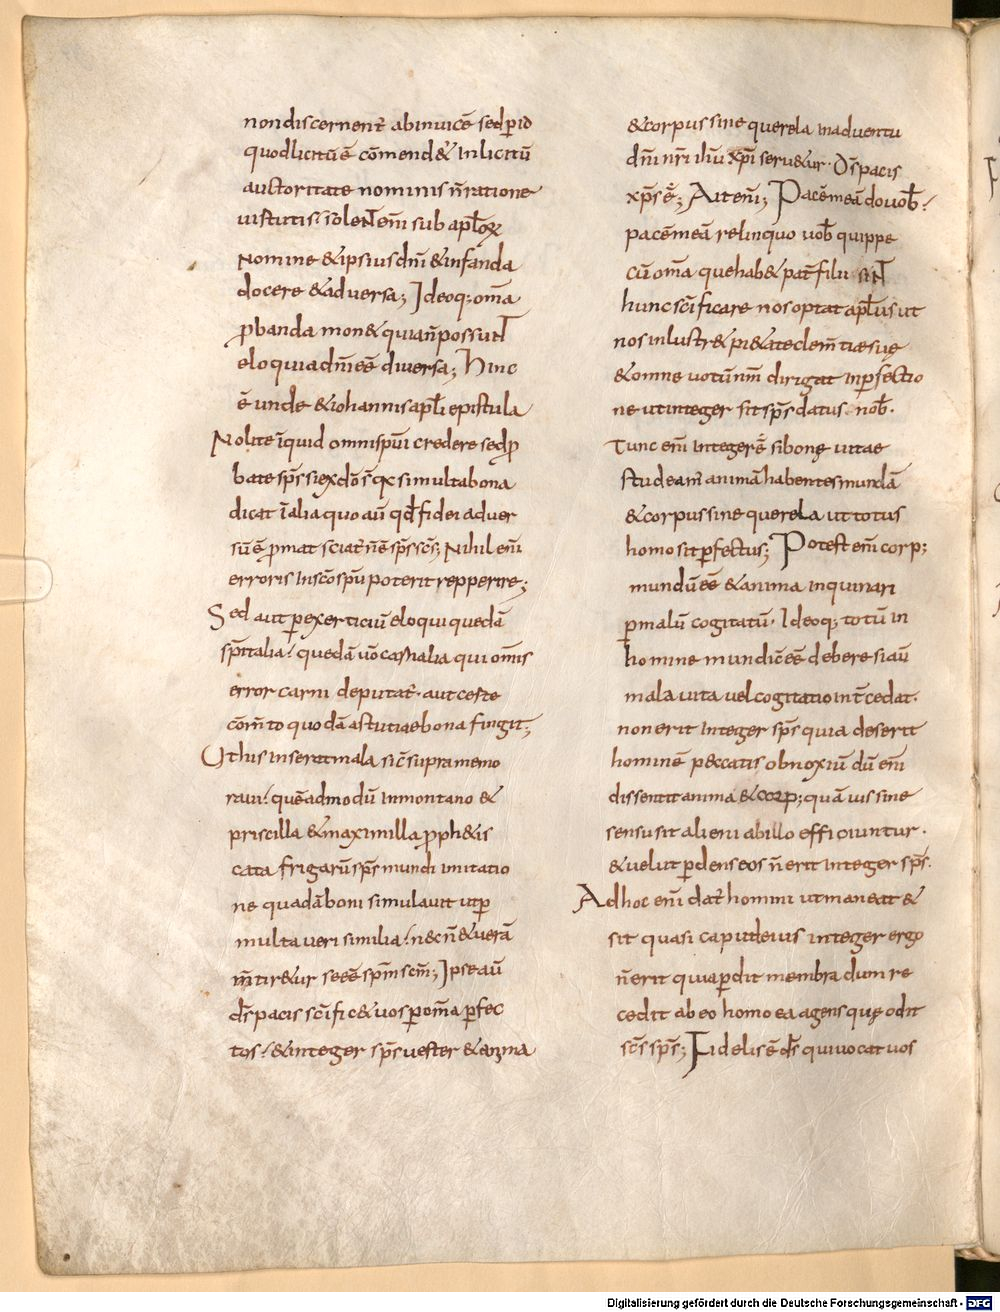 nondiscernent̄ abinuicē sed ꝑid
quodlicitūē cōmend& inlicitū
auctoritate nominis n̄ratione
uirtutis; solent em̄ sub apl̄oꝝ
nomine &ipsius dn̄i &infanda
docere &aduersa; Ideoq; om̄a
ꝓbanda mon& quian̄possunt
eloquia dn̄i eē diuersa; Hinc
ē unde &iohannis apl̄i epistula
Nolite īquid omnisp̄ui credere sed ꝓ
bate sp̄s siexdō s̄ qx simultabona
dicat īalia quo aū qd̄ fidei aduer
sū ē ꝓmat sciat̄ n̄ē sp̄s sc̄s; Nihil em̄
erroris insc̄o sp̄u poterit repperire;
Sed aut ꝑexerticiū eloqui quedā
sp̄italia! quedā ūo carnalia qui om̄is
error carni deputat̄. aut ceste
com̄to quodā astutiae bona fingit;
Uthis inserat mala sic̄ supra memo
raui! quēadmodū inmontano &
priscilla &maximilla ꝓph&is
cata frigarū sp̄s mundi imitatio
ne quadā boni simulauit utꝑ
multa ueri similia! n&cn̄ &uerā
m̄tir&ur seeē sp̄m sc̄m; Ipse aū
ds̄ pacis sc̄ific& uos ꝑom̄a ꝑfec
tos! &integer sp̄s uester &anima
&corpus sine querela inaduentu
dn̄i nr̄i ih̄u xp̄i seru&ur. Ds̄ pacis
xp̄s ē; Ait em̄; Pacē meā do uob̄!
pacē meā relinquo uob̄ quippe
cū om̄a que hab& pat̄ filii sint
hunc sc̄ificare nos optat apl̄us ut
nos inlustr& pi&ate clem̄tiae suę
&omne uotū nr̄m dirigat inꝑfectio
ne ut integer sit sp̄s datus nob̄.
Tunc em̄ integer ē sibone uitae
studeam̄ animā habentes mundā
&corpus sine querela ut totus
homo sit ꝑfectus; Potest em̄ corp;
mundū eē &anima inquinari
ꝑmalū cogitatū. Ideoq; totū in
homine mundū eē debere si aū
mala uita uel cogitatio int̄cedat.
non erit integer sp̄s quia deserit
hominē peccatis obnoxiū dū em̄
dissentit anima &corp; quā uis sine
sensu sit alieni abillo efficiuntur.
&uelut ꝑdens eos n̄ erit integer sp̄s.
Adhoc em̄ dat̄ homini ut maneat &
sit quasi caput eius integer ergo
n̄ erit quia ꝑdit membra dum re
cedit ab eo homo ea agens quę odit
sc̄s sp̄s; Fidelis ē ds̄ qui uocat uos
Digitalisierung gefördert durch die Deutsche Forschungsgemeinschaft - DFG